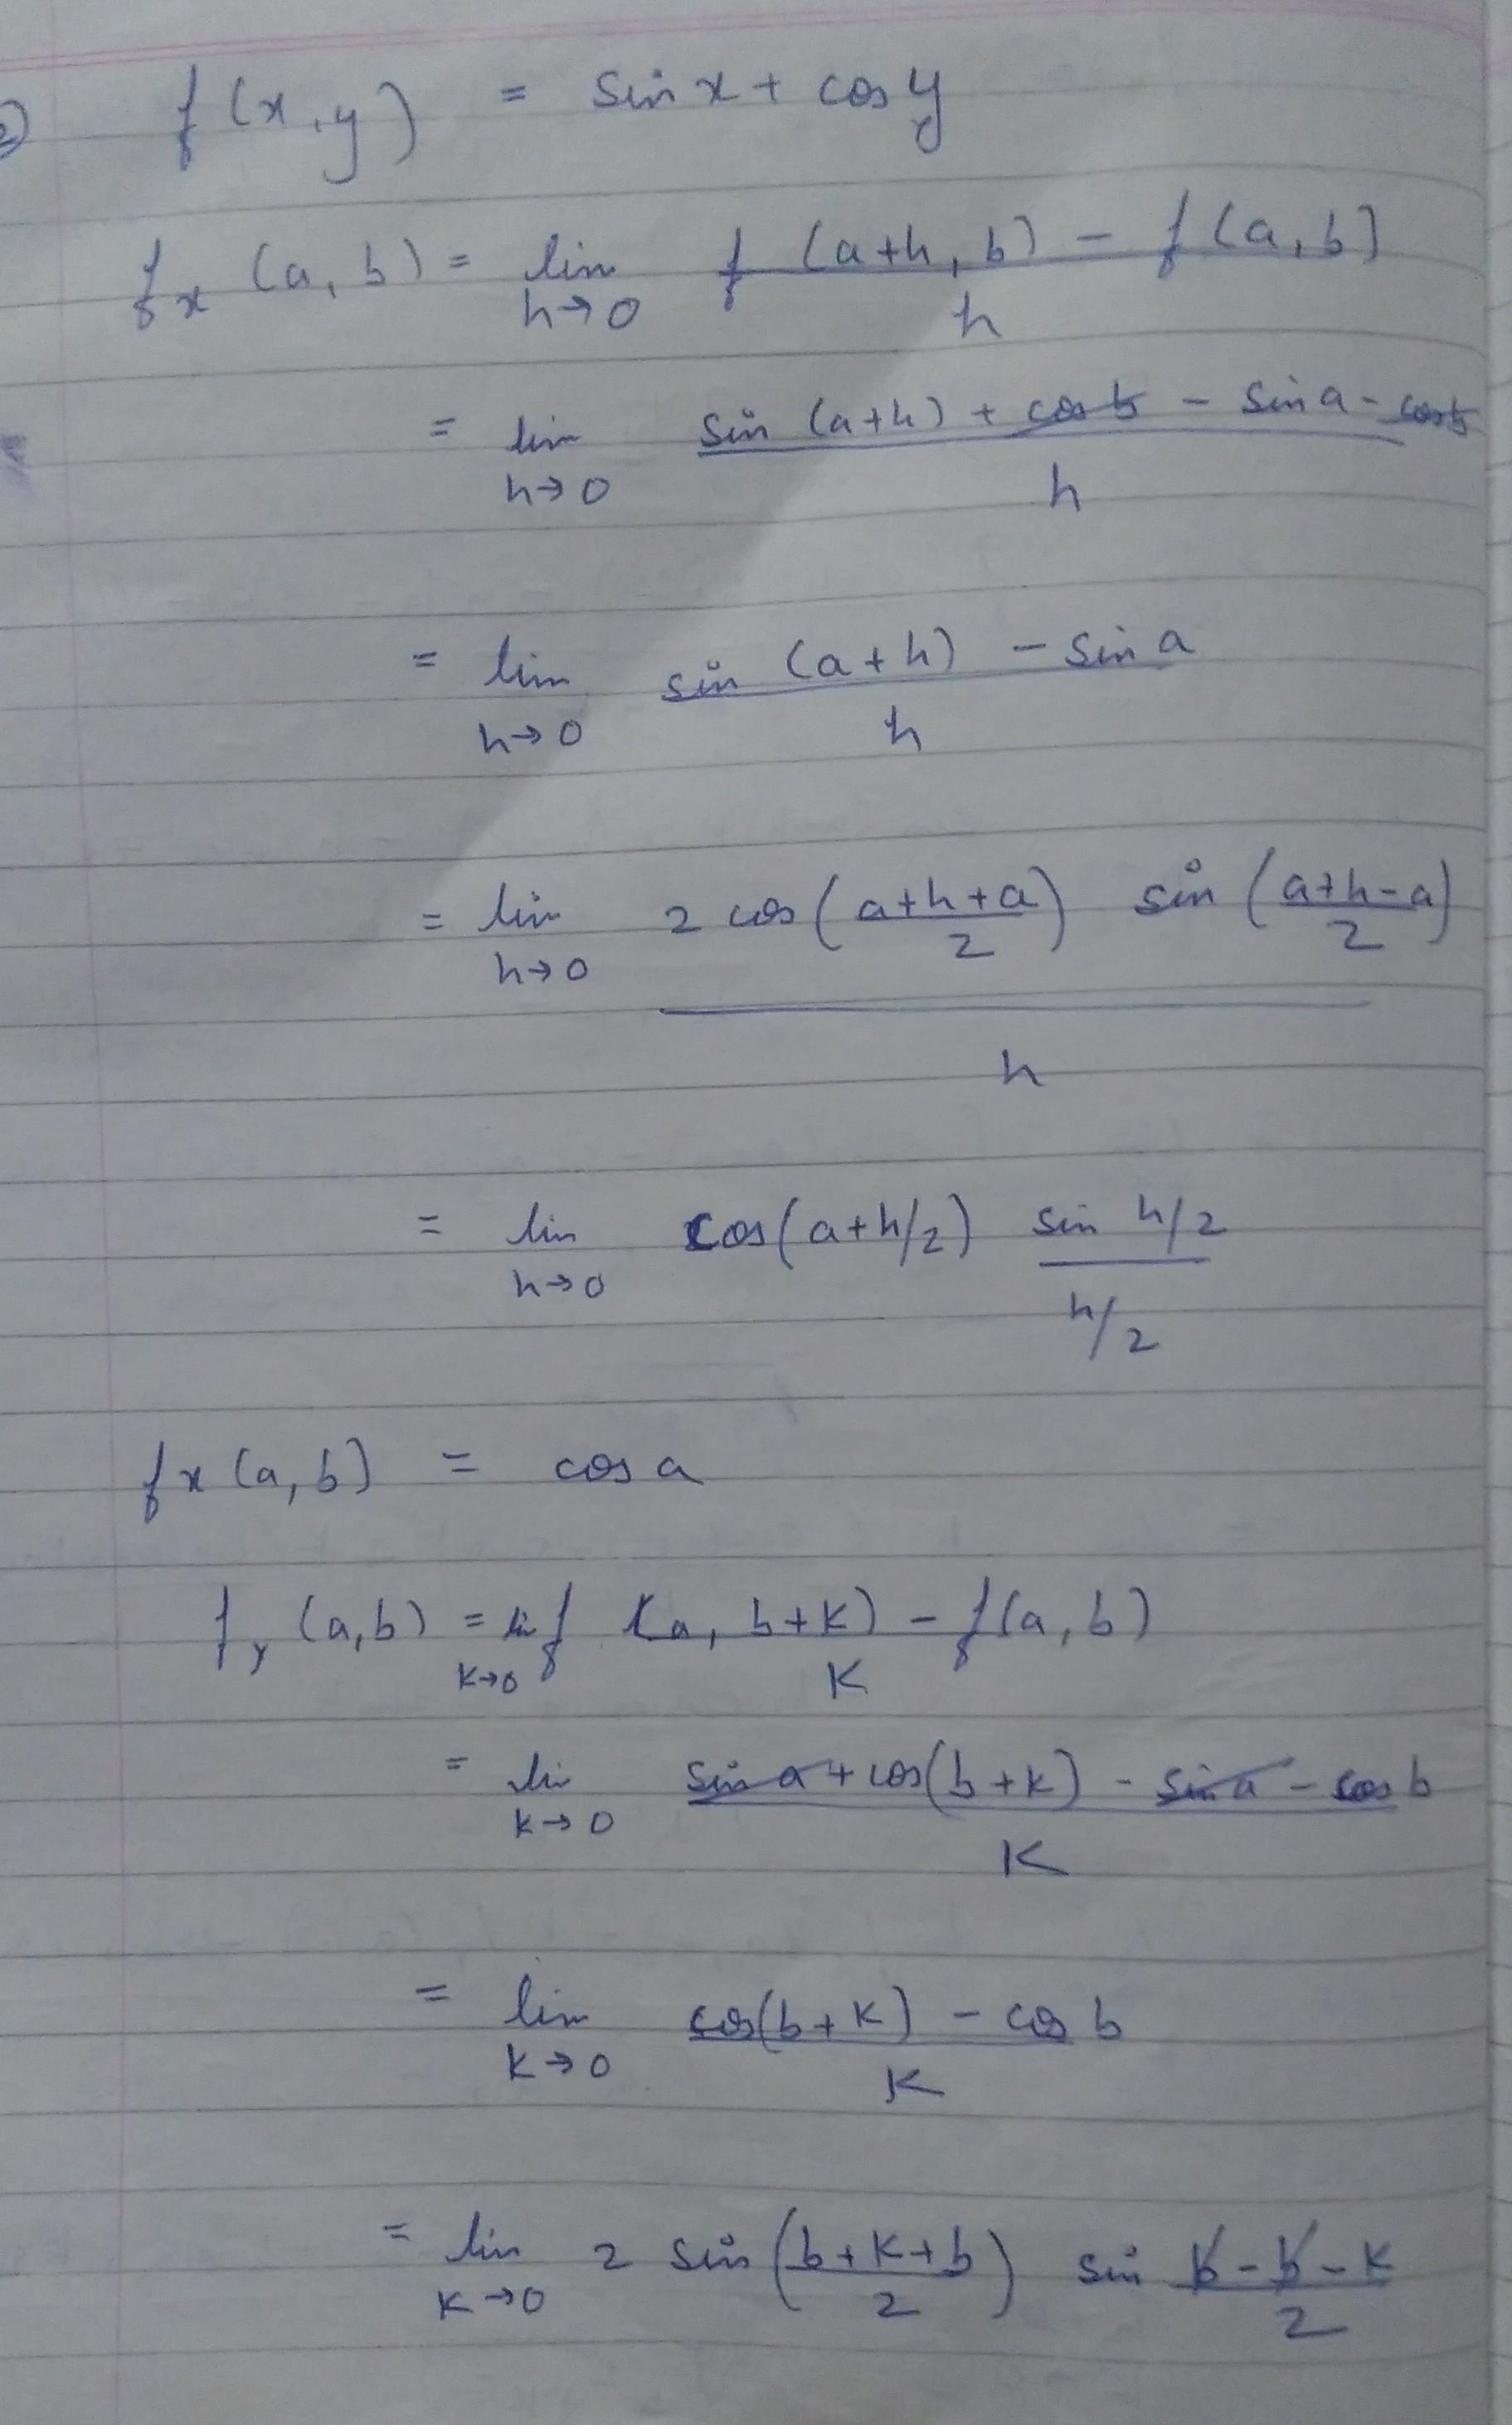 2) f(x,y) = sin x + cos y
fx (a, b) = lim h→0 f (a+h, b) - f(a, b) / h
= lim h→0 sin (a+h) + cos b - sin a - cos b / h
= lim h→0 sin (a+h) - sin a / h
= lim h→0 2 cos (a+h+a / 2) sin (a+h-a / 2) / h
= lim h→0 cos(a+h/2) sin h/2 / h/2
fx (a, b) = cos a
fy (a,b) = lim k→0 f (a, b+k) - f(a, b) / k
= lim k→0 sin a + cos(b+k) - sin a - cos b / k
= lim k→0 cos(b+k) - cos b / k
= lim k→0 2 sin (b+k+b / 2) sin b-b-k / 2